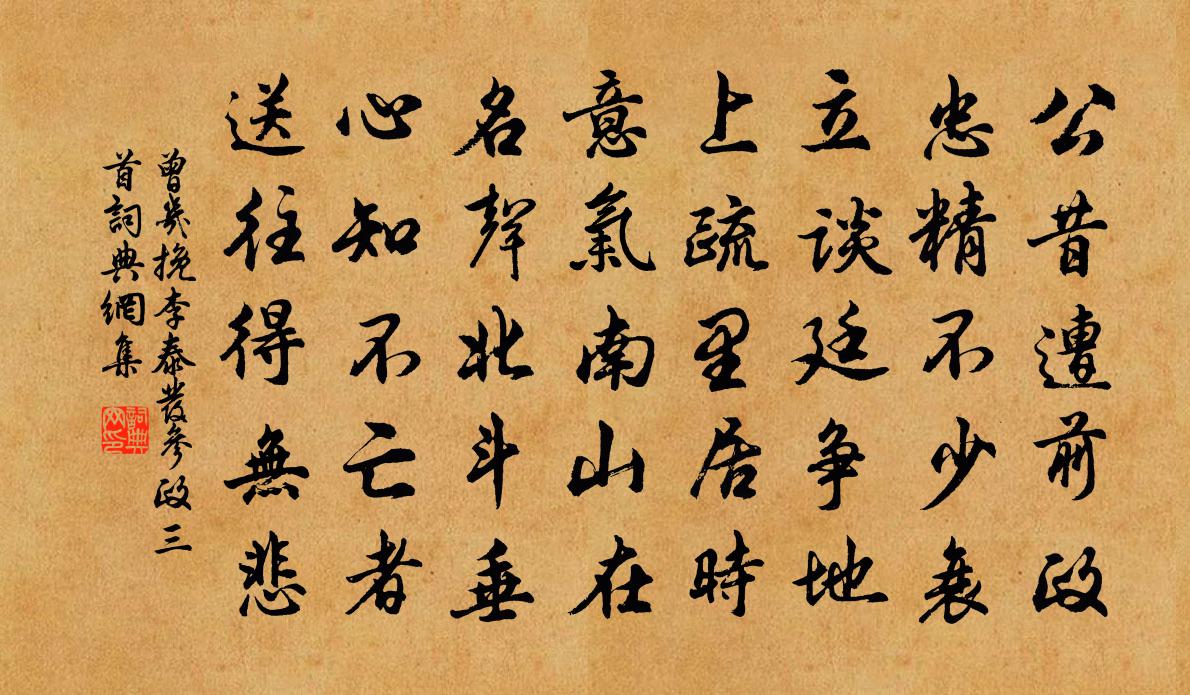 公昔遭前政
忠精不少衰
立談廷爭地
上疏里居時
意氣南山在
名聲北斗垂
心知不亡者
送往得無悲
曾幾挽李泰發參政三
首詞典網集
詞典
网印